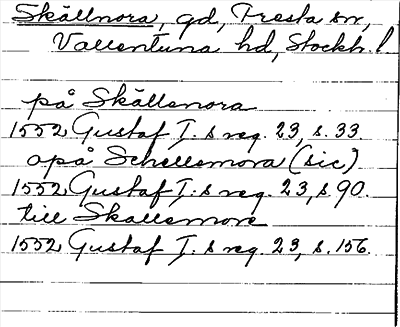 Skällnora, gd, Fresta sn,
Vallentuna hd, Stockh. l
på Skällsnora
1552 Gustaf I:s reg. 23, s. 33
opå Schellsmora (sic)
1552 Gustaf I:s reg. 23, s 90.
till Skallsmore
1552 Gustaf I:s reg. 23, s. 156.